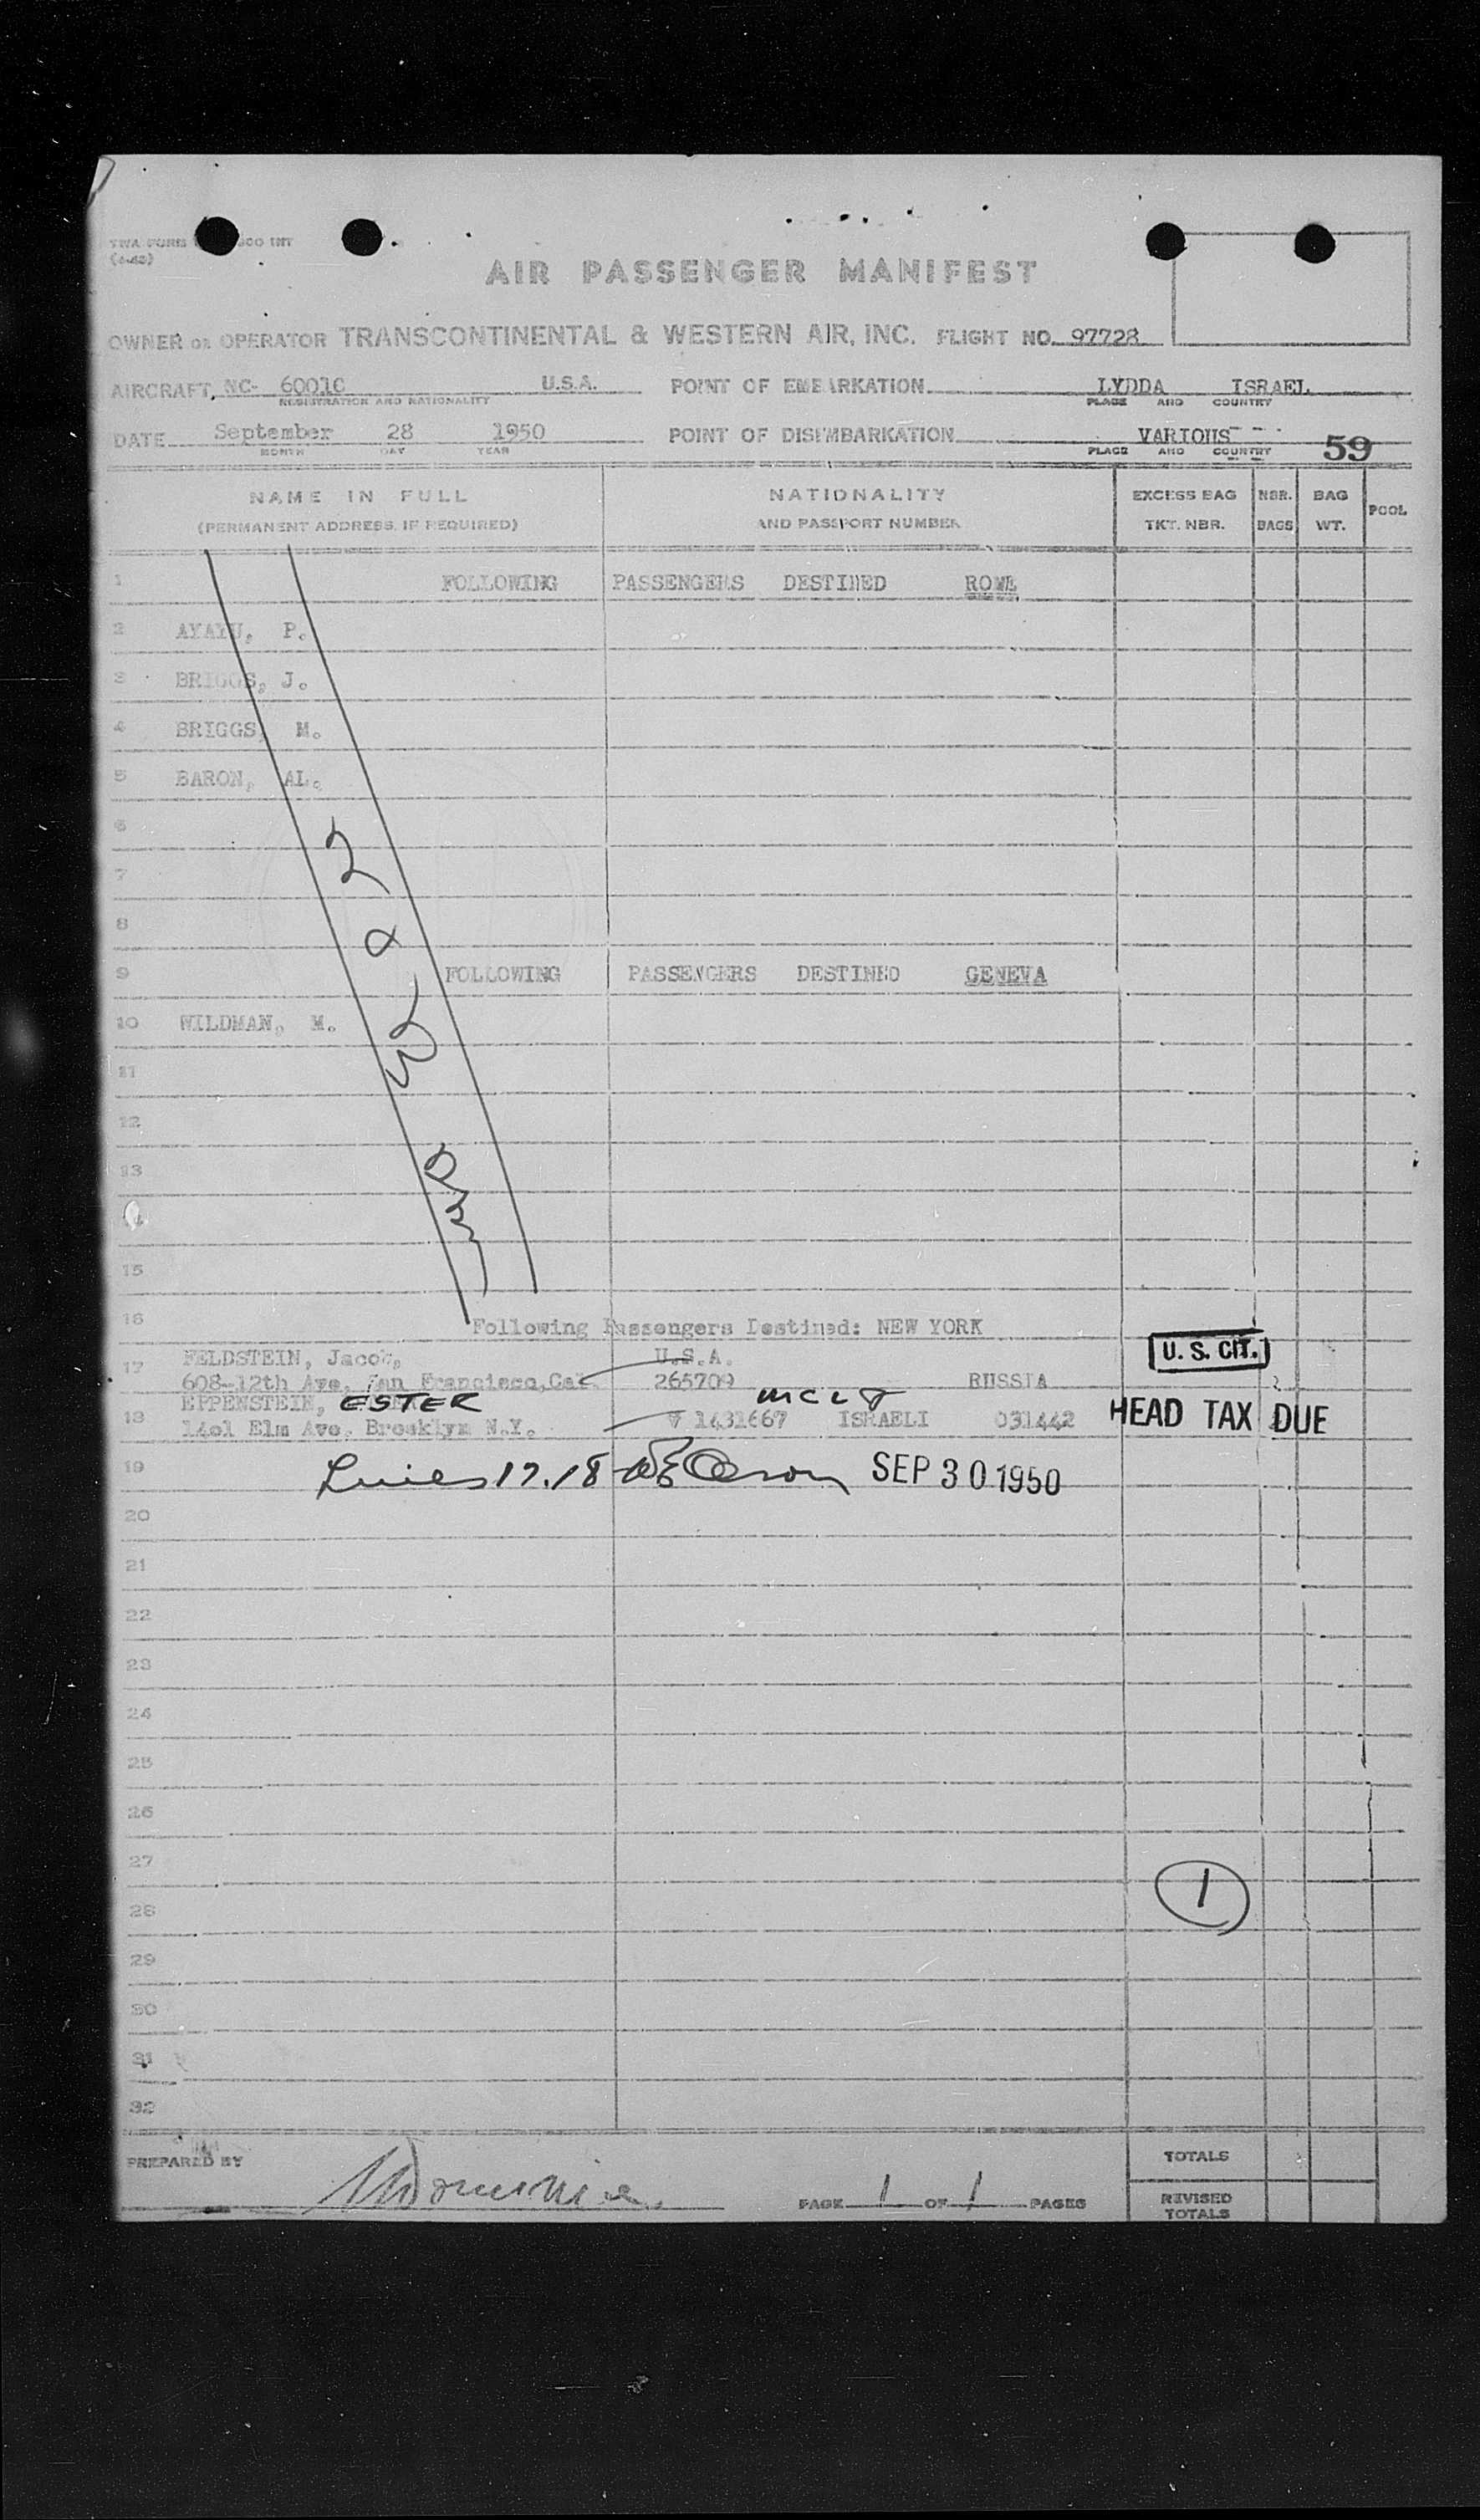 (4-48)
AIR PASSENGER MANIFEST
OWNER OR OPERATOR TRANSCONTINENTAL & WESTERN AIR, INC. FLIGHT NO. 97728
AIRCRAFT, NC- 6001C U.S.A. POINT OF EMBARKATION LYDDA ISRAEL
REGISTRATION AND NATIONALITY PLACE AND COUNTRY
DATE September 28 1950 POINT OF DISEMBARKATION VARIOUS
MONTH DAY YEAR PLACE AND COUNTRY 59
NAME IN FULL NATIONALITY EXCESS BAG NBR. BAG POOL
(PERMANENT ADDRESS, IF REQUIRED) AND PASSPORT NUMBER TKT. NBR. BAGS WT.
1 FOLLOWING PASSENGERS DESTINED ROME
2 AYAYU, P.
3 BRIGGS, J.
4 BRIGGS, M.
5 BARON, AL.
6
7
8
9 FOLLOWING PASSENGERS DESTINED GENEVA
10 WILDMAN, M.
11
12
13
14
15
16 Following Passengers Destined: NEW YORK
17 FELDSTEIN, Jacob, U.S.A. U. S. CIT.
608-12th Ave. San Francisco, Cal. 265709 RUSSIA
EPPENSTEIN, ESTER
18 1401 Elm Ave. Brooklyn N.Y. V 1431667 ISRAELI 031442 HEAD TAX DUE
19 Lines 17.18 SEP 30 1950
20
21
22
23
24
25
26
27
1
28
29
30
31
32
PREPARED BY TOTALS
PAGE 1 OF 1 PAGES REVISED
TOTALS